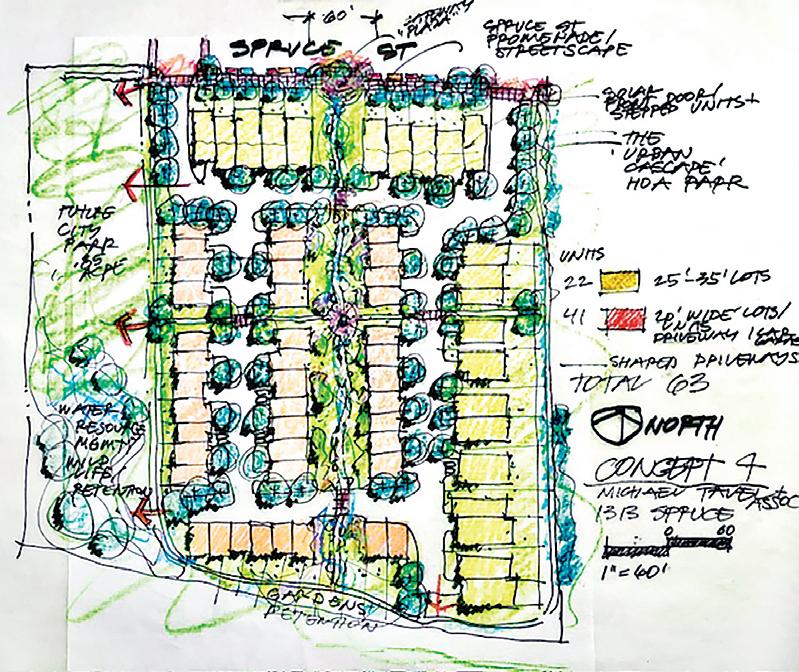 60'
GATEWAY
PLAZA
SPRUCE ST
SPRUCE ST
PROMENADE/
STREETSCAPE
SOLAR
FRONT DOOR/
STEPPED UNITS
THE
'URBAN
CASCADE'
HOA PARK
FUTURE
CITY
PARK
.85
ACRE
UNITS
22 25'-35' LOTS
41 20' WIDE LOTS/
UNITS
DRIVEWAY 1 CAR
SHARED DRIVEWAYS
TOTAL 63
NORTH
WATER
RESOURCE
MGMT
RETENTION
CONCEPT 4
MICHAEL TAVEL
ASSOC
1313 SPRUCE
0 60
1"=60'
GARDENS
DETENTION